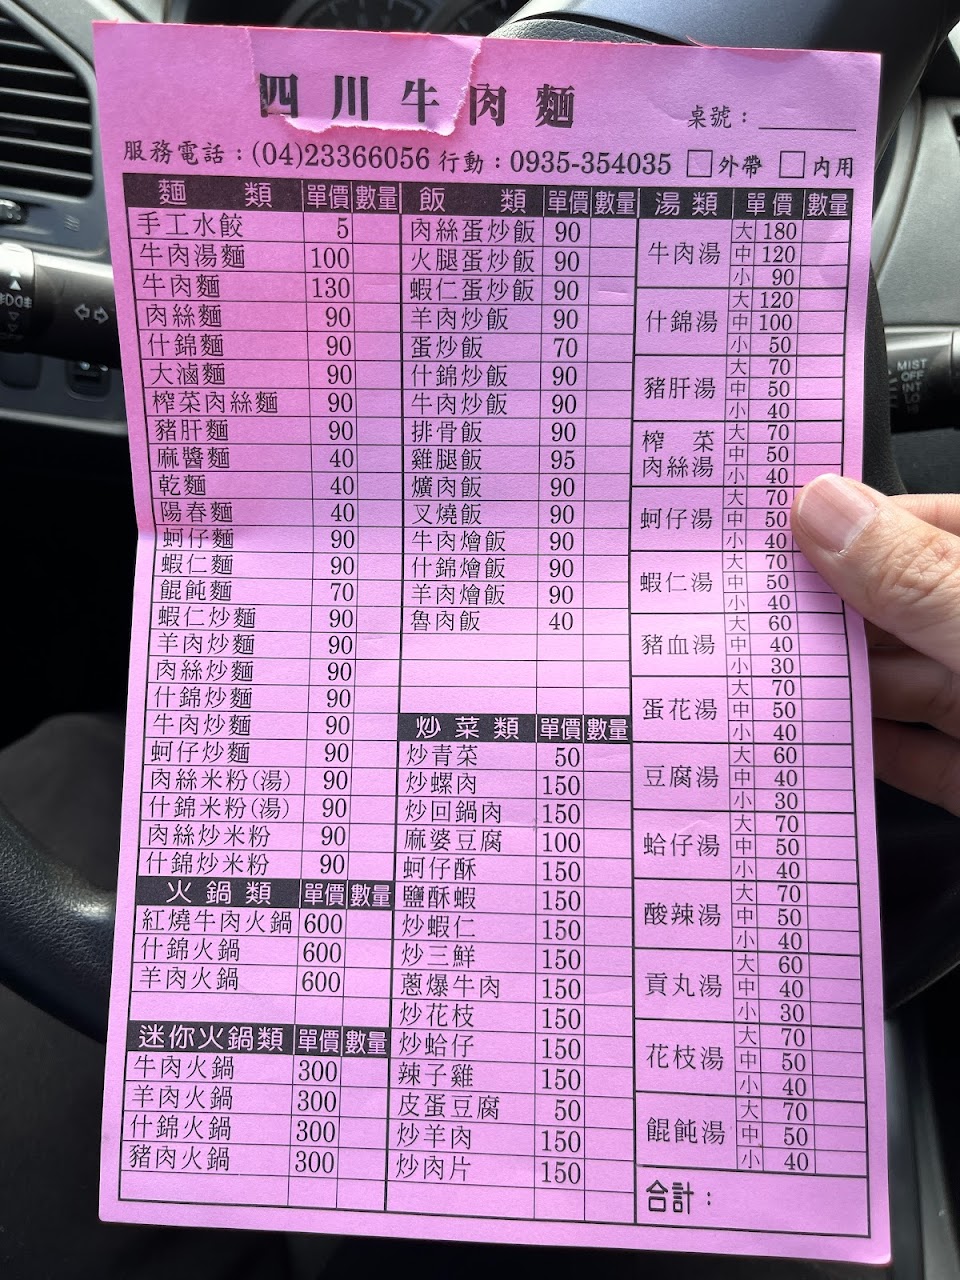 四川牛肉麵
桌號：
服務電話：(04)23366056 行動：0935-354035 □外帶 □內用
麵類 單價 數量
手工水餃 5
牛肉湯麵 100
牛肉麵 130
肉絲麵 90
什錦麵 90
大滷麵 90
榨菜肉絲麵 90
豬肝麵 90
麻醬麵 40
乾麵 40
陽春麵 40
蚵仔麵 90
蝦仁麵 90
餛飩麵 70
蝦仁炒麵 90
羊肉炒麵 90
肉絲炒麵 90
什錦炒麵 90
牛肉炒麵 90
蚵仔炒麵 90
肉絲米粉(湯) 90
什錦米粉(湯) 90
肉絲炒米粉 90
什錦炒米粉 90
火鍋類 單價 數量
紅燒牛肉火鍋 600
什錦火鍋 600
羊肉火鍋 600
迷你火鍋類 單價 數量
牛肉火鍋 300
羊肉火鍋 300
什錦火鍋 300
豬肉火鍋 300
飯類 單價 數量
肉絲蛋炒飯 90
火腿蛋炒飯 90
蝦仁蛋炒飯 90
羊肉炒飯 90
蛋炒飯 70
什錦炒飯 90
牛肉炒飯 90
排骨飯 90
雞腿飯 95
爌肉飯 90
叉燒飯 90
牛肉燴飯 90
什錦燴飯 90
羊肉燴飯 90
魯肉飯 40
炒菜類 單價 數量
炒青菜 50
炒螺肉 150
炒回鍋肉 150
麻婆豆腐 100
蚵仔酥 150
鹽酥蝦 150
炒蝦仁 150
炒三鮮 150
蔥爆牛肉 150
炒花枝 150
炒蛤仔 150
辣子雞 150
皮蛋豆腐 50
炒羊肉 150
炒肉片 150
湯類 單價 數量
牛肉湯
大 180
中 120
小 90
什錦湯
大 120
中 100
小 50
豬肝湯
大 70
中 50
小 40
榨菜
肉絲湯
大 70
中 50
小 40
蚵仔湯
大 70
中 50
小 40
蝦仁湯
大 70
中 50
小 40
豬血湯
大 60
中 40
小 30
蛋花湯
大 70
中 50
小 40
豆腐湯
大 60
中 40
小 30
蛤仔湯
大 70
中 50
小 40
酸辣湯
大 70
中 50
小 40
貢丸湯
大 60
中 40
小 30
花枝湯
大 70
中 50
小 40
餛飩湯
大 70
中 50
小 40
合計：
MIST
OFF
INT
LO